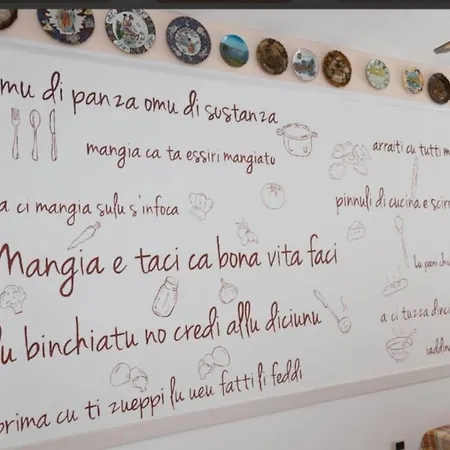 omu di panza omu di sustanza
mangia ca ta essiri mangiatu
a ci mangia sulu s'infoca
Mangia e taci ca bona vita faci
lu binchiatu no credi allu diciunu
prima cu ti zueppi lu ueu fatti li feddi
arraiti cu tutti
pinnuli di cucina e
lu pani
a ci tuzza